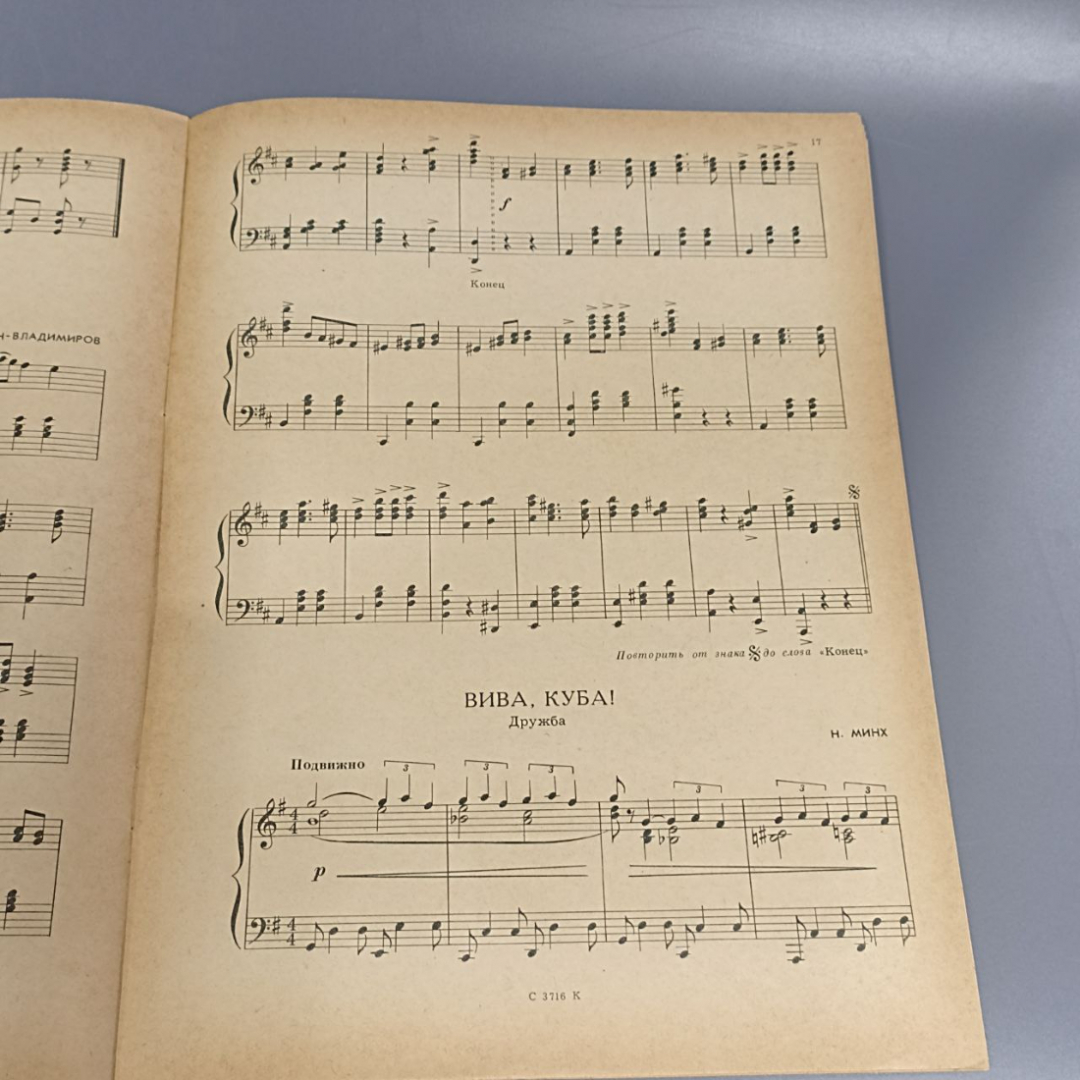 17
Н-ВЛАДИМИРОВ
f
Конец
Повторить от знака до слова «Конец»
ВИВА, КУБА!
Дружба
Н. МИНХ
Подвижно
3 3 3 3 3 3
4
4
p
4
4
С 3716 К